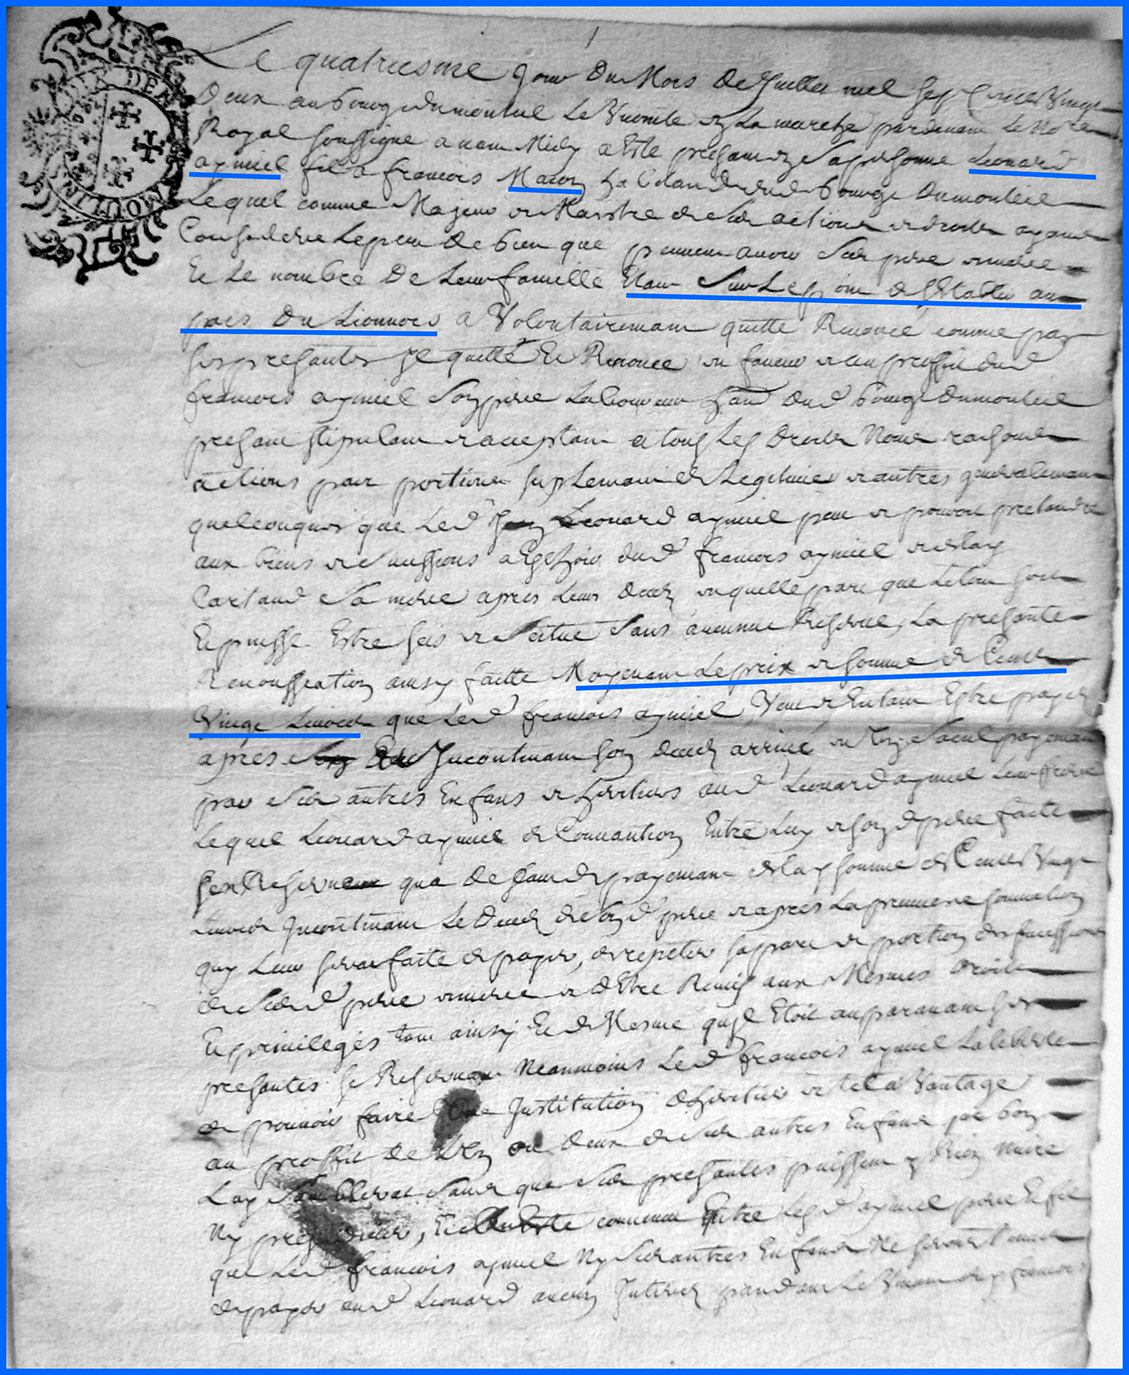 Le quatriesme jour du Mois de Juillet mil sept cents vingt
Deux au bourg du monteil Le Vicomte en La marche pardevant Le No.re
Royal soussigné avant Midy a Esté present en sa personne Leonard
aymiel fils a francois Macon ha[bitant] dud bourg Dumonteil
Lequel comme Majeur et Maistre de ses actions et droits ayant
Consideré Le peu de bien que peuvent avoir ses pere et mere
Et Le nombre De Leur famille Etant Sur Le point de s'Etablir au
païs Du Lionnois a Volontairement quitté Renoncé comme par
ses presantes Il quitte Et Renonce en faveur et au proffit dud
francois aymiel son pere Laboureur dud bourg Dumonteil
presant stipulant et acceptant a tous Les Droits Noms raisons
actions part portion suplement de Legitime et autres generalement
quelconques que Led Leonard aymiel peut et pouvoir pretendre
aux biens et successions dud francois aymiel et de
Cartaud sa mere apres Leurs deceds en quelle part que Le tout soit
Et puisse Estre sis et scitué Sans aucunne Reserve, La presante
Renonciation ainsy faitte Moyenant Le prix et somme de Cents
Vingt Livres que Led francois aymiel Veut et Entant Estre payez
apres Incontinant son deceds arrivé en Un Seul payement
par ses autres Enfans et heritiers aud Leonard aymiel Leur frere
Lequel Leonard aymiel de Convantion Entre Luy et sond pere faite
s'est Reservé qua De faut de payement de Lad somme de Cents Vingt
Livres Incontinant Le Deceds de sond pere et apres La premiere sommation
quy Leur sera faite de payer, de repeter sa part et portion des successions
de sesd pere et mere et d'Etre Remis aux Mesmes droits
Et privileges tout ainsy Et de Mesme quil Etoit auparavant ses
presantes se Reservant Neanmoins Led francois aymiel La liberté
de pouvoir faire Une Institution d'heritier et tel aVantage
au proffit de L'Un ou deux de ses autres Enfans que bon
Luy Semblera Sans que ses presantes puissent y Rien nuire
Ny prejudicier, Et Esté convenu Entre Lesd aymiel pere Et fils
que Led francois aymiel Ny Ses autres Enfans Ne seront tenus
de payer aud Leonard aucun Interest pendant Le Vivant dud francois